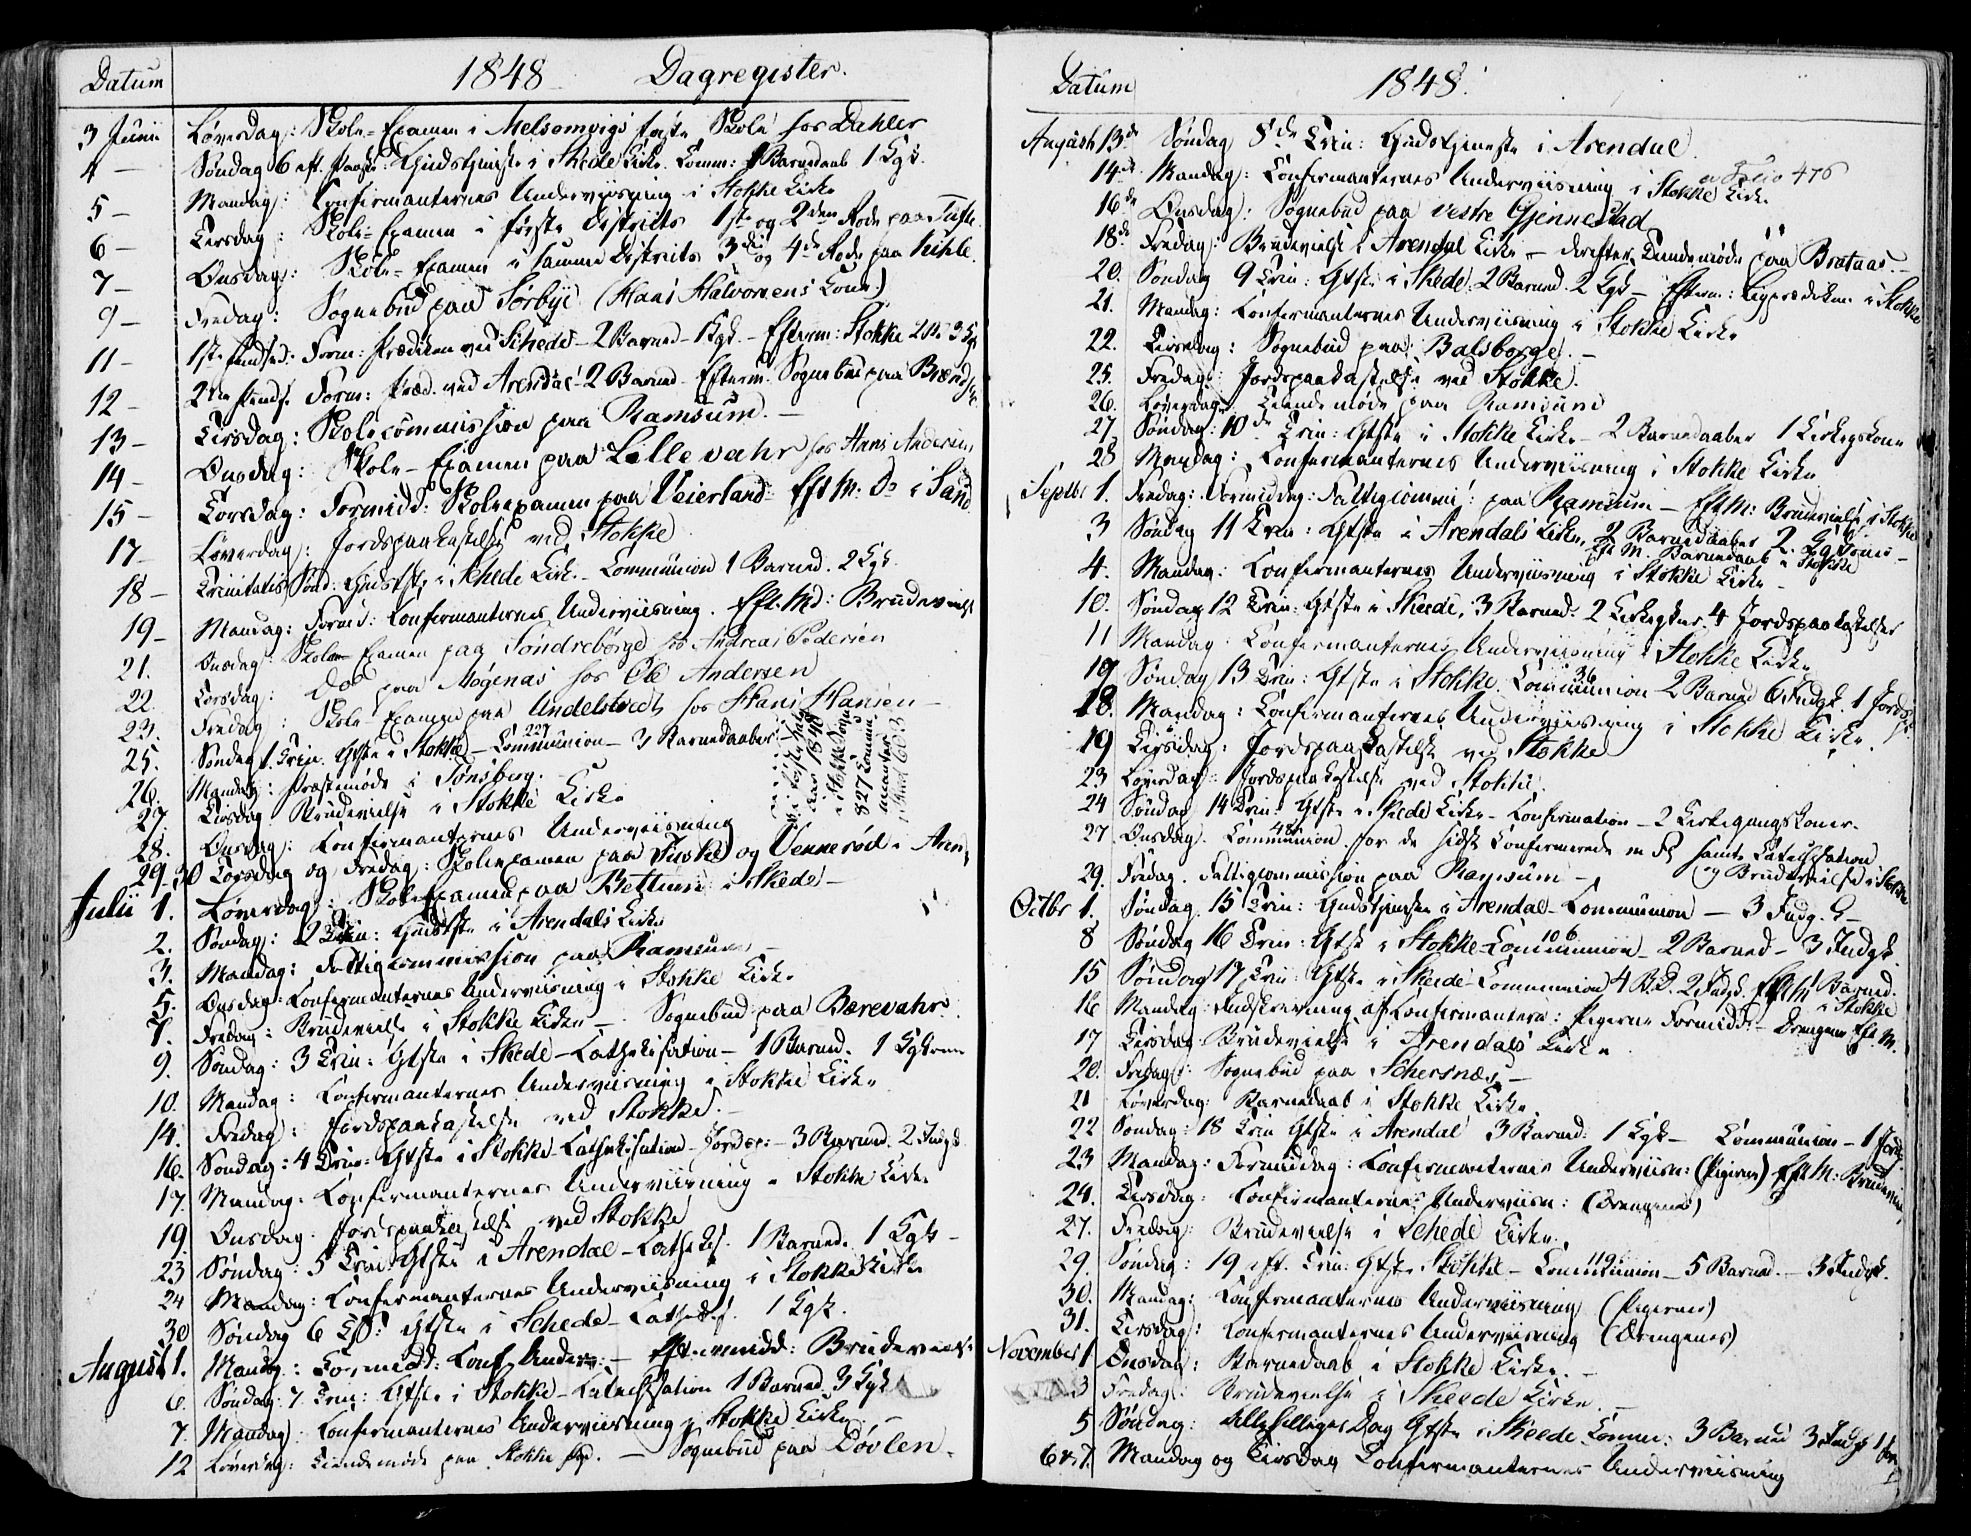 Datum 1848 Dagregister.
3 Junii Løverdag: Skole-Examen i Melsomvigs faste Skole hos Dahler
4 — Søndag 6 eft. Paaske: Gudstjeneste i Skede Kirke. Comm: 1 Barnedaab 1 Kgk.
5 — Mandag: Confirmanternes Underviisning i Stokke Kirke
6 — Tirsdag: Skole-Examen i første Districts 1ste og 2den Rode paa Tufte
7 — Onsdag: Skole-Examen i samme Districts 3die og 4de Rode paa
9 — Fredag: Sognebud paa Sørbye (Hans Halvorsens Kone)
11 — 1ste Pindsed: Form: Prædiken ved Skede — 2 Barned — Kgk. — Efterm: Stokke
12 — 2den Pinds. Form: Præd. ved Arendal — 2 Barned — Efterm. Sognebud paa
13 — Tirsdag: Skolecommission paa Ramsum. —
14 — Onsdag: Skole-Examen paa Lillevahr hos Hans Andersen
15 — Torsdag: Formidd: Skoleexamen paa Veierland — Eft M: Do i Sand
17 — Løverdag: Jordspaakastelse ved Stokke
18 — Trinitatis Sønd: Gudstjste i Skede Kirke — Communion 1 Barned. 2 Kgk.
19 — Mandag: Formd: Confirmanternes Underviisning. Eft. Md: Brudevielse
21. Onsdag: Skole-Examen paa Søndrebørge hos Andreas Pedersen
22 Torsdag: Do paa Møgenæs hos Ole Andersen
23. Fredag: Skole-Examen paa Undelstvedt hos Hans Hansen —
25. Søndag 1. Trin. Gtste i Stokke — Communion 227 — 3 Barnedaaber
26. Mandag: Præstemøde i Tønsberg. —
27. Tirsdag Brudevielse i Stokke Kirke
28. Onsdag: Confirmanternes Underviisning
29-30 Torsdag og Fredag: Skoleexamen paa Fuske og Vennerød i Aren
Julii 1. Løverdag: Skoleexamen paa Bettum i Skede —
2. Søndag: 2 Trin: Gudstste i Arendals Kirke
3. Mandag: Fattigcommission paa Ramsum —
5. Onsdag: Confirmanternes Underviisning i Stokke Kirke
7. Fredag: Brudevielse i Stokke Kirke — Sognebud paa Bærevahr.
9. Søndag: 3 Trin: Gtste i Skede — Cathekisation — 1 Barned. 1 Kgkone
10. Mandag: Confirmanternes Underviisning i Stokke Kirke
14. Fredag: Jordspaakastelse ved Stokke. —
16. Søndag: 4 Trin: Gtste i Stokke — Cathekisation — Jordsp: — 3 Barned. 2 Indgk
17. Mandag: Confirmanternes Underviisning i Stokke Kirke
19 Onsdag: Jordspaakastelse ved Stokke
23 Søndag: 5 Trin Gtste i Arendal — Cathekis. 1 Barned. 1 Kgk —
24 Mandag: Confirmanternes Underviisning i Stokke Kirke
30 Søndag 6 Gtste i Schede — Cathekis. 1 Kgk.
August 1. Mandag: Formidd: Conf. Underv: — Eftermidd: Brudevielse
6. Søndag: 7 Trin: Gtste i Stokke — Catechisation 1 Barned 3 Kgk
7. Mandag: Confirmanternes Underviisning i Stokke Kirke —
12 Løverdag: Tiendemøde paa Stokke — Sognebud paa Løvlen —
i Aaret 1848
i Stokke Sogn
827 Commu
nicanter
Datum 1848.
August 13de Søndag 8de Trin: Gudstjeneste i Arendal.
14de Mandag: Confirmanternes Underviisning i Stokke Kirke
Folio 476
16de Onsdag: Sognebud paa Vestre Gjennestad
18de Fredag: Brudevielse i Arendal Kirke — derefter Tiendemøde paa Brataas —
20. Søndag 9 Trin: Gtste i Skede: 2 Barned. 2 Kgk — Efterm: Ligprædiken i Stokke
21. Mandag: Confirmanternes Underviisning i Stokke Kirke
22. Tirsdag: Sognebud paa Balsborge. —
25. Fredag: Jordspaakastelse ved Stokke.
26. Løverdag: Tiendemøde paa Ramsum
27 Søndag: 10de Trin: Gtste i Stokke Kirke — 2 Barnedaaber 1 Kirkegkone
28 Mandag: Confirmanternes Underviisning i Stokke Kirke
Septbr 1. Fredag: Formiddag: Fattigcommi: paa Ramsum — Eft M: Brudevielse i Stokke
3 Søndag 11 Trin: Gtste i Arendals Kirke, 2 Barnedaaber 2
Eft M. Barnedaab i Stokke
4. Mandag: Confirmanternes Underviisning i Stokke Kirke —
10. Søndag 12 Trin: Gtste i Skede, 3 Barned. 2 Kirkegkner 4 Jordspaakastelser
11 Mandag: Confirmanternes Underviisning i Stokke Kirke
17 Søndag 13 Trin: Gtste i Stokke. Communion 36 2 Barned 6 Indgk. 1 Jordsp.
18. Mandag: Confirmanternes Underviisning i Stokke Kirke.
19 Tirsdag: Jordspaakastelse ved Stokke
23 Løverdag: Jordspaakastelse ved Stokke.
24 Søndag 14 Trin: Gtste i Skede Kirke — Confirmation — 2 Kirkegangskoner.
27 Onsdag. Communion 48 for de sidst Confirmerede samt Catechisation
og Brudevielse i Stokke
29. Fredag. Fattigcommission paa Ramsum —
Octbr 1. Søndag. 15 Trin: Gudstjeneste i Arendal — Communion — 3 Indg.
8 Søndag 16 Trin: Gtste i Stokke — Communion 106 — 2 Barned — 3 Indgk.
15 Søndag 17 Trin: Gtste i Skede — Communion 4 B.D. 2 Indgk. Eft M 1 Barned.
i Stokke
16 Mandag: Indskrivning af Confirmanter: Pigerne Formidd. — Drengene Eft. M.
17 Tirsdag Brudevielse i Arendals Kirke
20. Fredag: Sognebud paa Schersnæs —
21 Løverdag: Barnedaab i Stokke Kirke
22 Søndag: 18 Trin Gtste i Arendal 3 Barned: 1 Kgk — Communion — 1 Jords.
23 Mandag: Formiddag: Confirmanternes Underviisn: (Pigerne) Eft M: Brudevielse
24. Tirsdag: Confirmanternes Underviisn: (Drengene)
27. Fredag: Brudevielse i Schede Kirke.
29. Søndag: 19 eft. Trin: Gtste Stokke — Communion 119 — 5 Barned. — 3 Indgk.
30. Mandag: Confirmanternes Underviisning (Pigernes)
31. Tirsdag: Confirmanternes Underviisning (Drengenes)
November 1 Onsdag: Barnedaab i Stokke Kirke. —
3 Fredag: Brudevielse i Skeede Kirke. —
5 Søndag: Allehelligens Dag Gtste i Skeede Commu: 3 Barned 3 Indgk 1
6 & 7. Mandag og Tirsdag Confirmanternes Underviisning